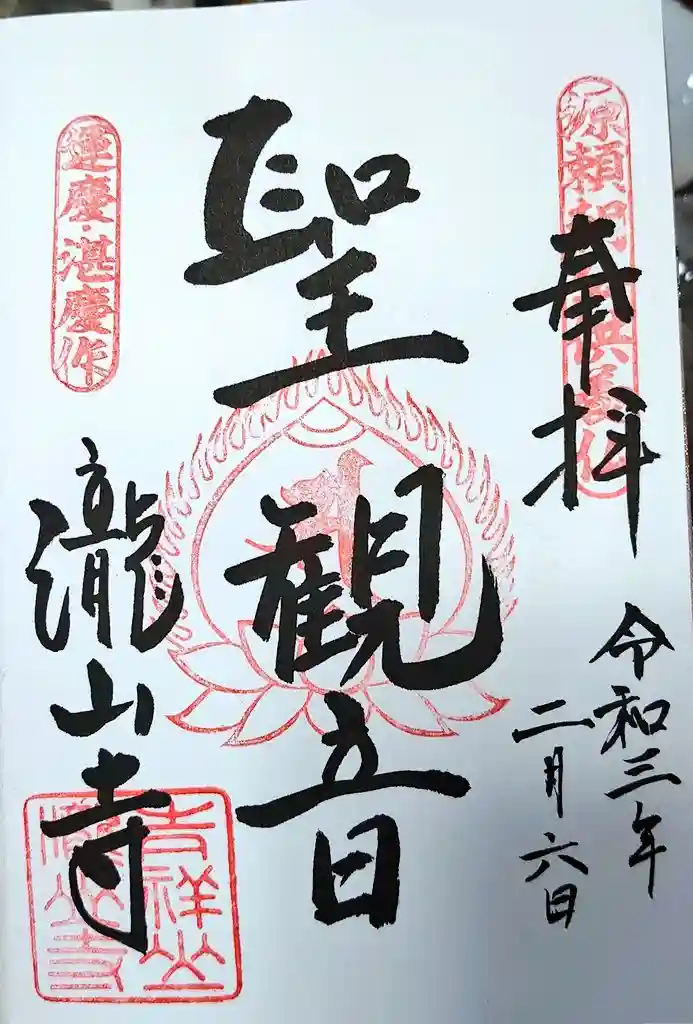 奉拝
源頼朝供養仏
令和三年
二月六日
聖観音
運慶・湛慶作
瀧山寺
吉祥山
瀧山寺